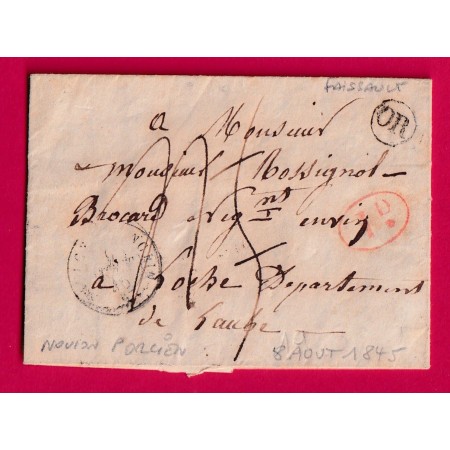 FAISSAULT
OR
a Monsieur
a Monsieur Rossignol
Brocard Neg nt en vin
a Roche Departement
de Laube
NOVION PORCIEN
8 AOUT 1845